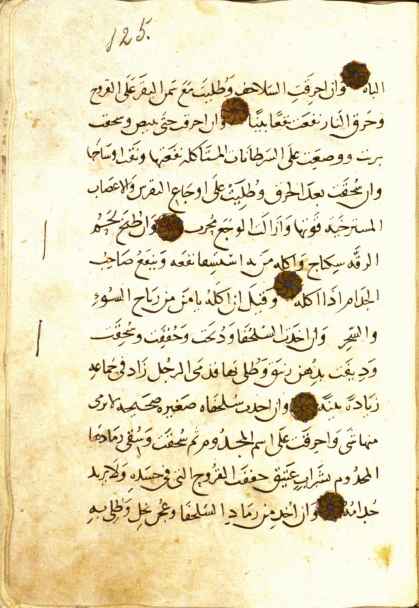 125.
الباه وان احرقت السلاحف وطليت مع سمن البقر على القروح
وحرق النار نفعت نفعا بينا وان احرق حتى يبيض وسحقت
ووضعت على السرطانات المتأكله نفعتها ونقت اوساخها
وان سحقت بعد الحرق وطليت على اوجاع النقرس والاعصاب
المسترخيه قوتها وازالت الوجع مجرب وان طبخ لحم
الرقه سكباج واكله من به استسقا نفعه وينفع صاحب
الجذام اذا اكله وقيل ان اكله يامن من رياح السوء
والسحر وان اخذت السلحفا وذبحت وجففت وسحقت
وديفت بدهن زنبق وطلي بها قدمى الرجل زاد في جماعه
زياده بينه وان اخذت سلحفاه صغيره صحيحه لا يرى
منها شى واحرقت على اسم المجذوم ثم سحقت وسقى رمادها
المجذوم بشراب عتيق جففت القروح التى في جسده ولا يزيد
جذامه وان اخذ من رماد السلحفا وعجن بخل وطلى به